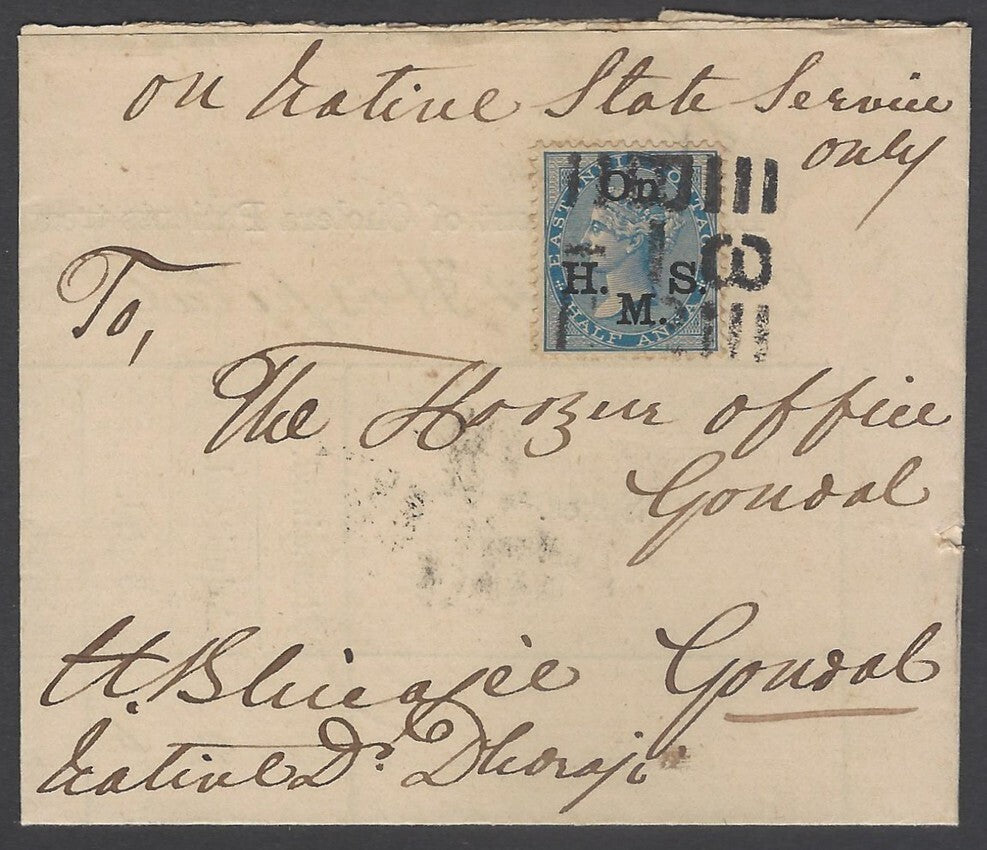 on Native State Service
only
EAST INDIA POSTAGE
On
H. S.
M.
HALF ANNA
8
To,
The Hozur office
Gondal
H. Bhicajee Gondal
Native Dr. Dhoraji